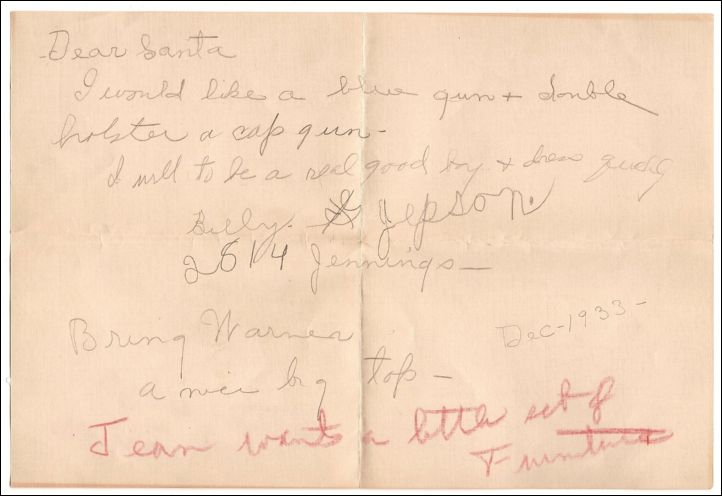 Dear Santa
I would like a blue gun + double
holster a cap gun -
I will to be a real good boy + dress quickly
Billy Jepson.
2814 Jennings -
Dec - 1933 -
Bring Warner
a nice big top -
Jean wants a little set of
Furniture